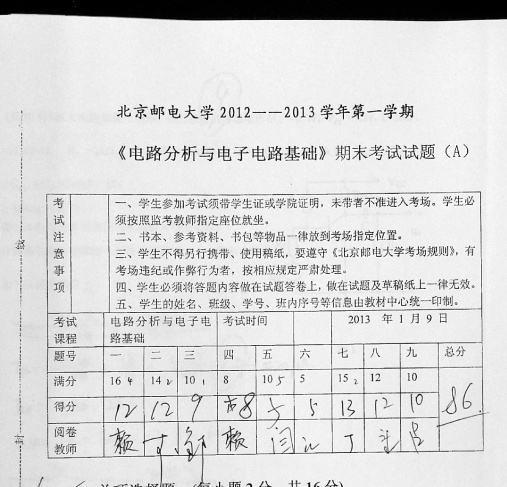 北京邮电大学 2012——2013 学年第一学期
《电路分析与电子电路基础》期末考试试题（A）
考试注意事项
一、学生参加考试须带学生证或学院证明，未带者不准进入考场。学生必
须按照监考教师指定座位就坐。
二、书本、参考资料、书包等物品一律放到考场指定位置。
三、学生不得另行携带、使用稿纸，要遵守《北京邮电大学考场规则》，有
考场违纪或作弊行为者，按相应规定严肃处理。
四、学生必须将答题内容做在试题答卷上，做在试题及草稿纸上一律无效。
五、学生的姓名、班级、学号、班内序号等信息由教材中心统一印制。
考试课程 电路分析与电子电路基础 考试时间 2013 年 1 月 9 日
题号 一 二 三 四 五 六 七 八 九 总分
满分 16 4 14 2 10 1 8 10 5 5 15 2 12 10
得分 12 12 9 8 5 13 12 10 86
阅卷教师 赖 丁 赖 闫 丁
单项选择题（每小题 2 分，共 16 分）